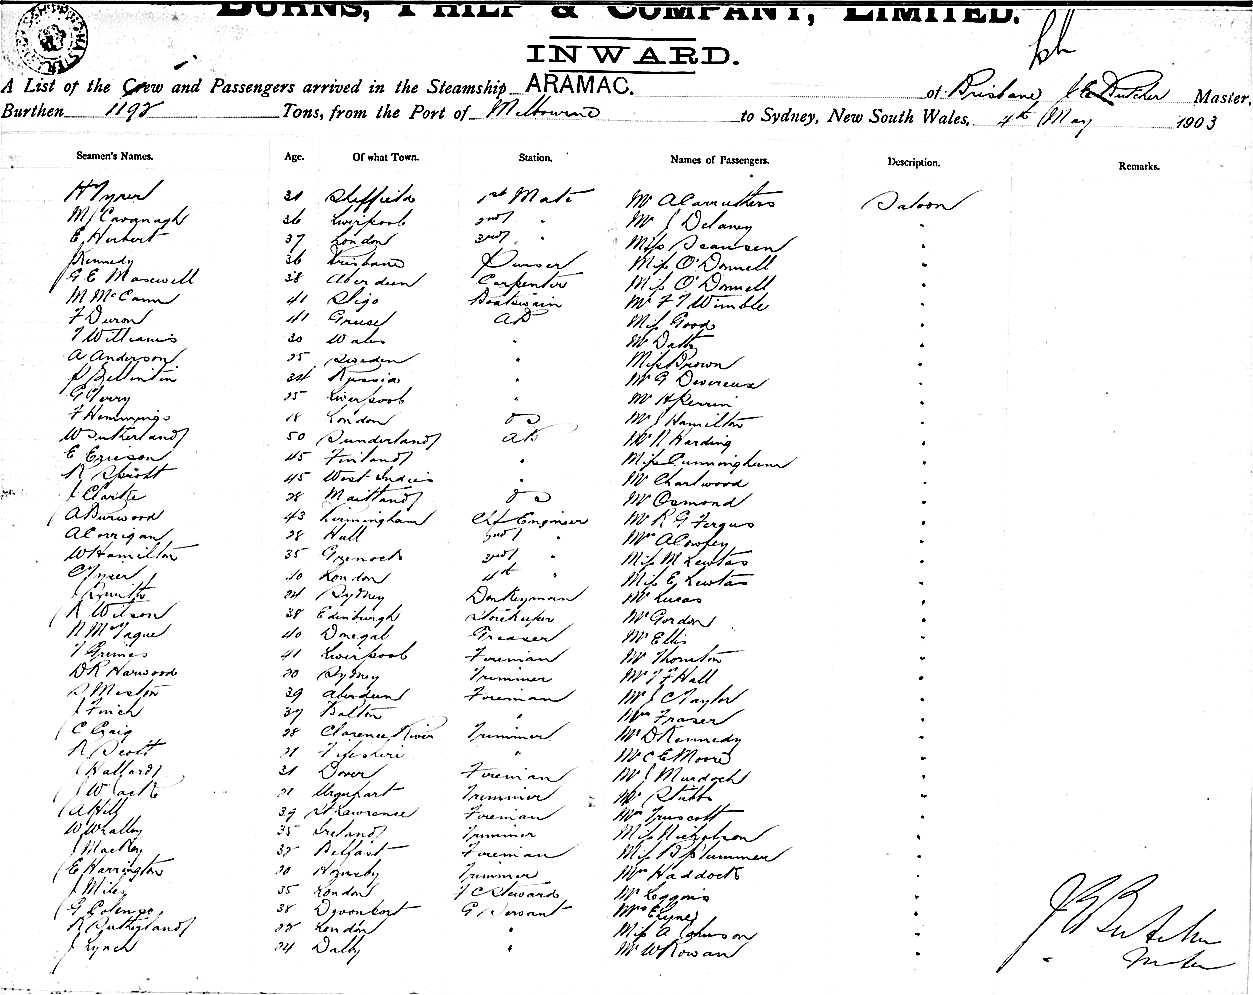 BURNS, PHILP & COMPANY, LIMITED.
INWARD.
A List of the Crew and Passengers arrived in the Steamship ARAMAC. of Brisbane J E Butcher Master,
Burthen 1192 Tons, from the Port of Melbourne to Sydney, New South Wales, 4th May 1903
Seamen's Names. Age. Of what Town. Station. Names of Passengers. Description. Remarks.
H Tyrer 31 Sheffield 1st Mate Mr A Carruthers Saloon
M Cavanagh 36 Liverpool 2nd " Mr J Delaney "
E Herbert 37 London 3rd " Miss "
Kennedy 36 Brisbane Purser Miss O'Donnell "
G E Maxwell 38 Aberdeen Carpenter Miss O'Donnell "
M McCann 41 Sligo Boatswain Mr F T Wimble "
F Duron 41 Greece AB Miss Good "
T Williams 30 Wales " Mr Datty "
A Anderson 25 Sweden " Miss Brown "
24 Russia " Mr G Devereux "
G Terry 25 Liverpool " Mr H Perrin "
F Hemmings 18 London OS Mr J Hamilton "
W Sutherland 50 Sunderland AB Mr R Harding "
E Ericson 45 Finland " Miss Cunningham "
R Sprott 45 West Indies " Mr Chartwood "
J Clarke 28 Maitland OS Mr Osmond "
A Burwood 43 Birmingham Chf Engineer Mr R G Fergus "
A Corrigan 28 Hull 2nd " Mrs "
W Hamilton 35 Greenock 3rd " Miss M Lewtas "
C Tyser 40 London 4th " Miss E Lewtas "
J Smith 24 Sydney Donkeyman Mr Lucas "
R Wilson 38 Edinburgh Storekeeper Mr Gordon "
N McTague 40 Donegal Greaser Mr Ellis "
T Grimes 41 Liverpool Fireman Mr Thornton "
D R Harwood 20 Sydney Trimmer Mr T F Hall "
S Meston 39 Aberdeen Fireman Mr J C Taylor "
J Finch 37 Bolton " Mrs Fraser "
C Craig 28 Clarence River Trimmer Mr D Kennedy "
R Scott 21 Fifeshire " Mr C E Moore "
J Hallard 31 Dover Fireman Mr J Murdoch "
J W 21 Urquhart Trimmer Mr Stubbs "
A Hill 39 St Lawrence Fireman Mrs Truscott "
W Whalley 35 Ireland Trimmer Miss Nicholson "
J Mackay 37 Belfast Fireman Miss B Plummer "
E Harrington 20 Hornsby Trimmer Mrs Haddock "
J Miles 35 London F C Steward Mr Loggins "
G Colenso 38 Devonport G Servant Mrs "
R Sutherland 28 London " Miss A "
J Lynch 24 Dalby " Mr W Rowan "
J E Butcher
Master